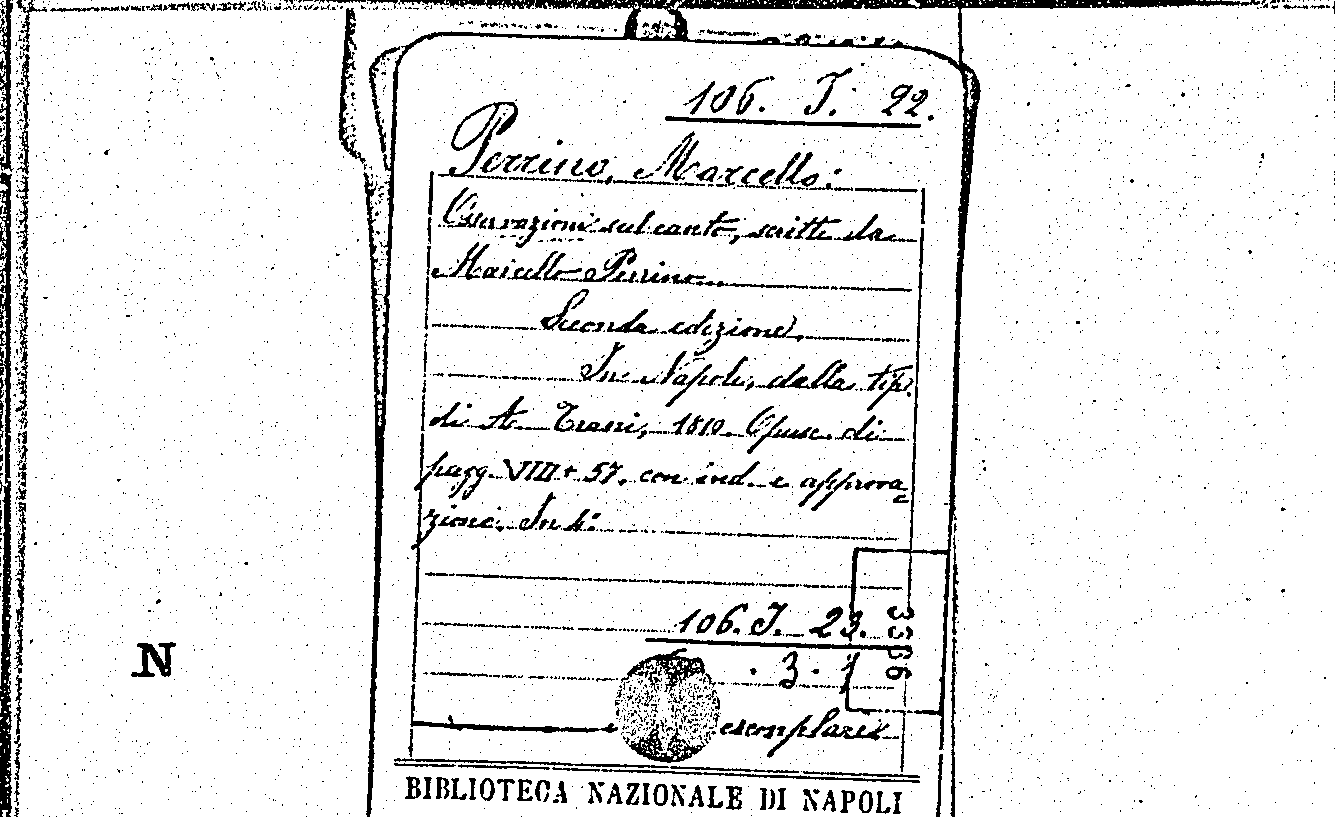 106. J. 22.
Perrino, Marcello:
Osservazioni sul canto, scritte da
Marcello Perrino.
Seconda edizione.
In Napoli, dalla tip.
di A. Trani, 1810. Opusc. di
pagg. VIII + 57. con ind. e approva=
zione. In 4.º
106. J. 23.
3396
. 3 . 1
esemplare
N
BIBLIOTECA NAZIONALE DI NAPOLI